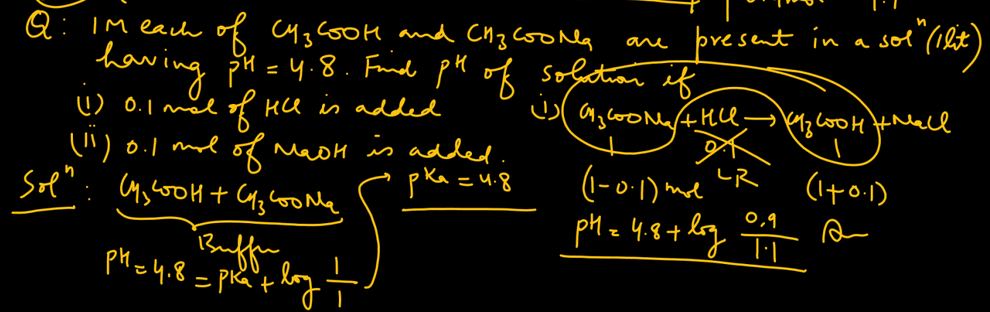 0.1mol 1.1
Q: 1M each of CH3COOH and CH3COONa are present in a solⁿ (1lit)
having pH = 4.8. Find pH of solution if
(i) 0.1 mol of HCl is added
(ii) 0.1 mol of NaOH is added.
Solⁿ: CH3COOH + CH3COONa
Buffer
pH = 4.8 = pKa + log 1/1
pKa = 4.8
i) CH3COONa + HCl → CH3COOH + NaCl
1 0.1 1
LR
(1-0.1) mol (1+0.1)
pH = 4.8 + log 0.9/1.1